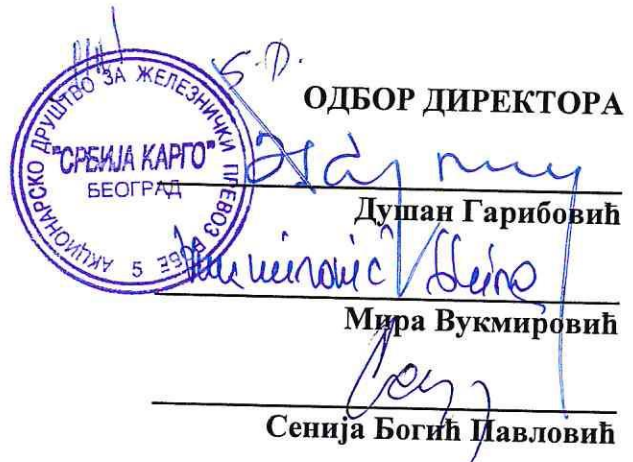 АКЦИОНАРСКО ДРУШТВО ЗА ЖЕЛЕЗНИЧКИ ПРЕВОЗ РОБЕ
"СРБИЈА КАРГО"
БЕОГРАД
5
ОДБОР ДИРЕКТОРА
Душан Гарибовић
Мира Вукмировић
Сенија Богић Павловић